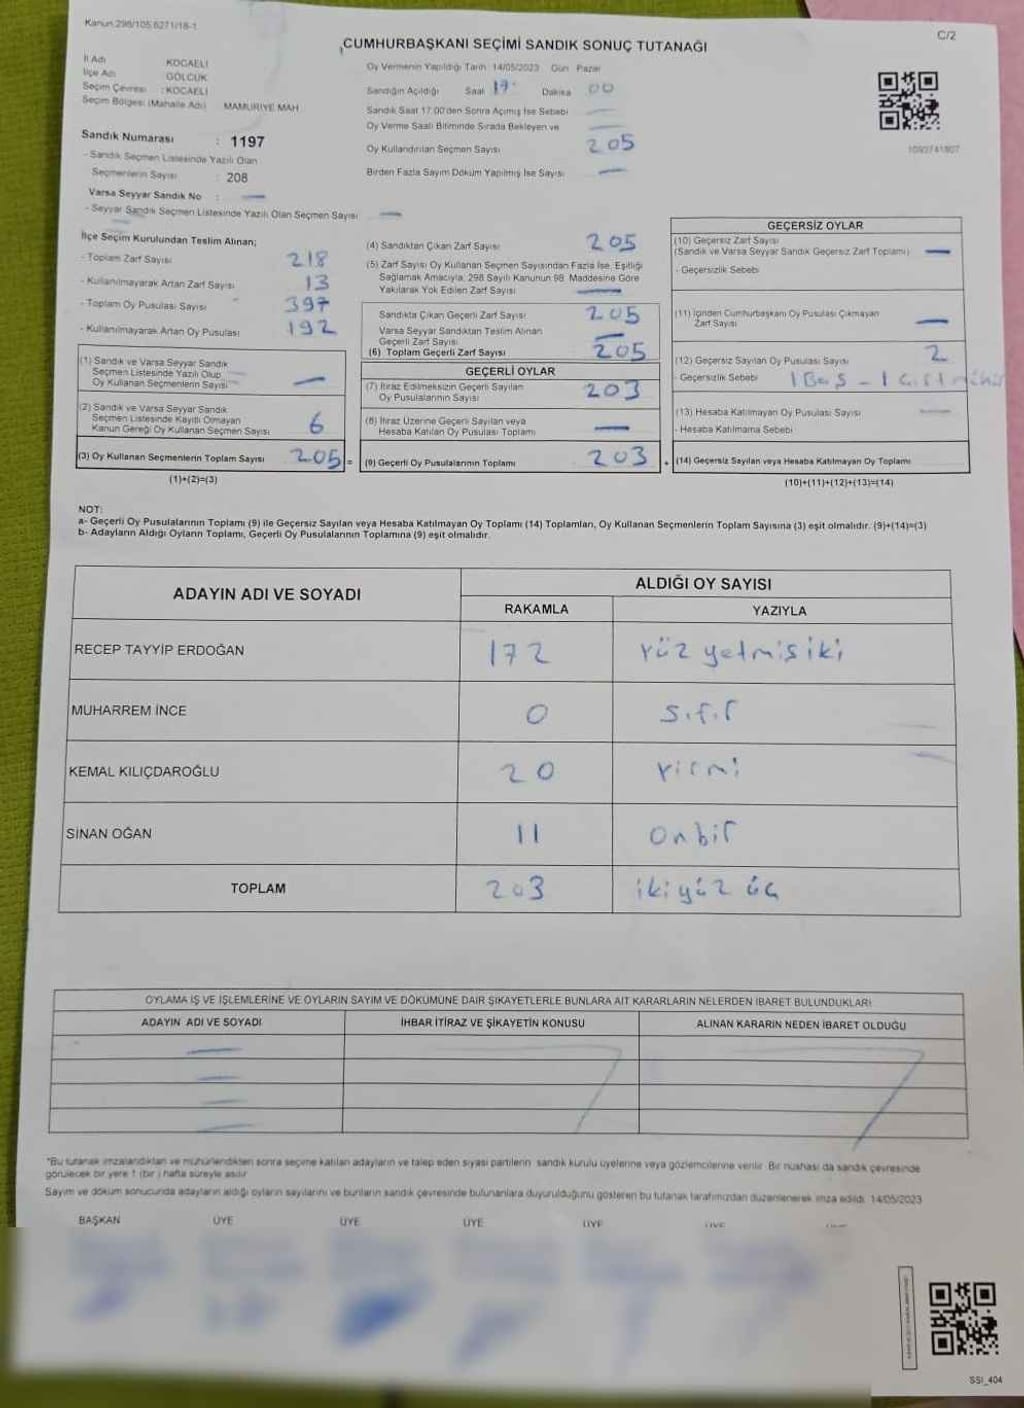 Kanun 298/105,6271/18-1
C/2
CUMHURBAŞKANI SEÇİMİ SANDIK SONUÇ TUTANAĞI
İl Adı KOCAELİ
İlçe Adı GÖLCÜK
Seçim Çevresi : KOCAELİ
Seçim Bölgesi (Mahalle Adı) MAMURİYE MAH.
Sandık Numarası : 1197
- Sandık Seçmen Listesinde Yazılı Olan
Seçmenlerin Sayısı : 208
Varsa Seyyar Sandık No : —
- Seyyar Sandık Seçmen Listesinde Yazılı Olan Seçmen Sayısı —
Oy Vermenin Yapıldığı Tarih 14/05/2023 Gün Pazar
Sandığın Açıldığı Saat 17 Dakika 00
Sandık Saat 17.00'den Sonra Açımış İse Sebebi —
Oy Verme Saati Bitiminde Sırada Bekleyen ve —
Oy Kullandırılan Seçmen Sayısı 205
Birden Fazla Sayım Döküm Yapılmış İse Sayısı —
1092741807
İlçe Seçim Kurulundan Teslim Alınan;
- Toplam Zarf Sayısı 218
- Kullanılmayarak Artan Zarf Sayısı 13
- Toplam Oy Pusulası Sayısı 397
- Kullanılmayarak Artan Oy Pusulası 192
(1) Sandık ve Varsa Seyyar Sandık
Seçmen Listesinde Yazılı Olup
Oy Kullanan Seçmenlerin Sayısı —
(2) Sandık ve Varsa Seyyar Sandık
Seçmen Listesinde Kayıtlı Olmayan
Kanun Gereği Oy Kullanan Seçmen Sayısı 6
(3) Oy Kullanan Seçmenlerin Toplam Sayısı 205 =
(1)+(2)=(3)
(4) Sandıktan Çıkan Zarf Sayısı 205
(5) Zarf Sayısı Oy Kullanan Seçmen Sayısından Fazla İse, Eşitliği
Sağlamak Amacıyla; 298 Sayılı Kanunun 98. Maddesine Göre
Yakılarak Yok Edilen Zarf Sayısı —
Sandıkta Çıkan Geçerli Zarf Sayısı 205
Varsa Seyyar Sandıktan Teslim Alınan
Geçerli Zarf Sayısı —
(6) Toplam Geçerli Zarf Sayısı 205
GEÇERLİ OYLAR
(7) İtiraz Edilmeksizin Geçerli Sayılan
Oy Pusulalarının Sayısı 203
(8) İtiraz Üzerine Geçerli Sayılan veya
Hesaba Katılan Oy Pusulası Toplamı —
(9) Geçerli Oy Pusulalarının Toplamı 203 +
GEÇERSİZ OYLAR
(10) Geçersiz Zarf Sayısı
(Sandık ve Varsa Seyyar Sandık Geçersiz Zarf Toplamı) —
- Geçersizlik Sebebi
(11) İçinden Cumhurbaşkanı Oy Pusulası Çıkmayan
Zarf Sayısı —
(12) Geçersiz Sayılan Oy Pusulası Sayısı 2
- Geçersizlik Sebebi 1 Boş - 1
(13) Hesaba Katılmayan Oy Pusulası Sayısı —
- Hesaba Katılmama Sebebi
(14) Geçersiz Sayılan veya Hesaba Katılmayan Oy Toplamı
(10)+(11)+(12)+(13)=(14)
NOT:
a- Geçerli Oy Pusulalarının Toplamı (9) ile Geçersiz Sayılan veya Hesaba Katılmayan Oy Toplamı (14) Toplamları, Oy Kullanan Seçmenlerin Toplam Sayısına (3) eşit olmalıdır. (9)+(14)=(3)
b- Adayların Aldığı Oyların Toplamı, Geçerli Oy Pusulalarının Toplamına (9) eşit olmalıdır.
ADAYIN ADI VE SOYADI ALDIĞI OY SAYISI
RAKAMLA YAZIYLA
RECEP TAYYİP ERDOĞAN 172 Yüz yetmiş iki
MUHARREM İNCE 0 Sıfır
KEMAL KILIÇDAROĞLU 20 Yirmi
SİNAN OĞAN 11 Onbir
TOPLAM 203 ikiyüz üç
OYLAMA İŞ VE İŞLEMLERİNE VE OYLARIN SAYIM VE DÖKÜMÜNE DAİR ŞİKAYETLERLE BUNLARA AİT KARARLARIN NELERDEN İBARET BULUNDUKLARI
ADAYIN ADI VE SOYADI İHBAR İTİRAZ VE ŞİKAYETİN KONUSU ALINAN KARARIN NEDEN İBARET OLDUĞU
*Bu tutanak imzalandıktan ve mühürlendikten sonra seçime katılan adayların ve talep eden siyasi partilerin sandık kurulu üyelerine veya gözlemcilerine verilir. Bir nüshası da sandık çevresinde
görülecek bir yere 1 (bir) hafta süreyle asılır.
Sayım ve döküm sonucunda adayların aldığı oyların sayılarını ve bunların sandık çevresinde bulunanlara duyurulduğunu gösteren bu tutanak tarafımızdan düzenlenerek imza edildi. 14/05/2023
BAŞKAN ÜYE ÜYE ÜYE ÜYE ÜYE
SSI_404